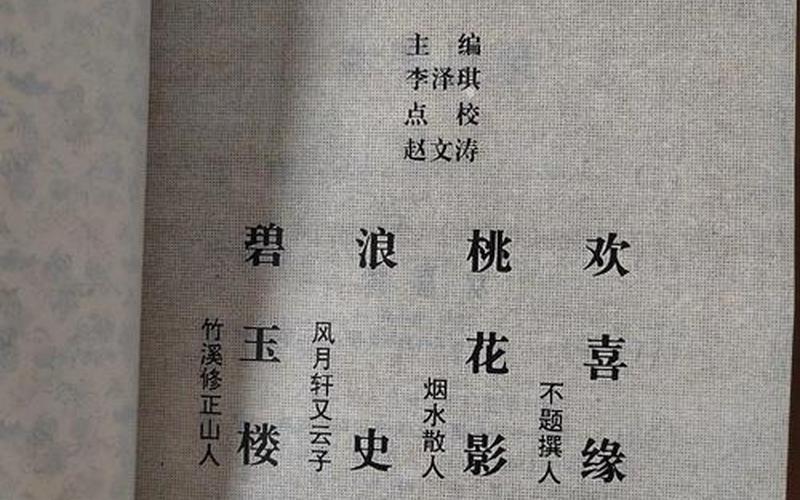 主编
李泽琪
点校
赵文涛
欢喜缘
不题撰人
桃花影
烟水散人
浪史
风月轩又云子
碧玉楼
竹溪修正山人